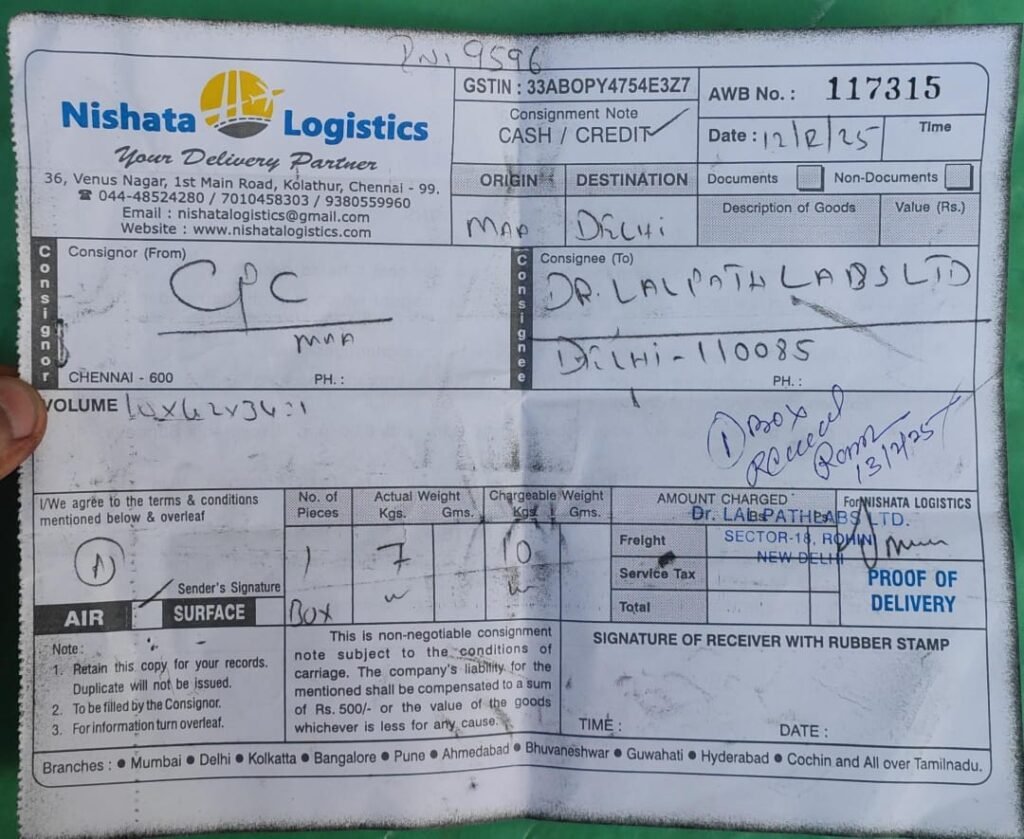 DNI 9596
Nishata Logistics
Your Delivery Partner
36, Venus Nagar, 1st Main Road, Kolathur, Chennai - 99.
☎ 044-48524280 / 7010458303 / 9380559960
Email : nishatalogistics@gmail.com
Website : www.nishatalogistics.com
GSTIN : 33ABOPY4754E3Z7
Consignment Note
CASH / CREDIT ✓
AWB No. : 117315
Date : 12/2/25 Time
ORIGIN DESTINATION
MAA DELHI
Documents Non-Documents
Description of Goods Value (Rs.)
Consignor
Consignor (From)
CPC
MAA
CHENNAI - 600 PH. :
Consignee
Consignee (To)
DR. LAL PATH LABS LTD
DELHI - 110085
PH. :
VOLUME
1 BOX
Received
13/2/25
I/We agree to the terms & conditions
mentioned below & overleaf
Sender's Signature
AIR SURFACE
No. of Pieces
1
BOX
Actual Weight
Kgs. Gms.
7
Chargeable Weight
Kgs. Gms.
10
AMOUNT CHARGED
Rs. Ps.
Freight
Service Tax
Total
Dr. LAL PATHLABS LTD.
SECTOR-18, ROHINI
NEW DELHI
For NISHATA LOGISTICS
PROOF OF
DELIVERY
Note :
1. Retain this copy for your records.
Duplicate will not be issued.
2. To be filled by the Consignor.
3. For information turn overleaf.
This is non-negotiable consignment
note subject to the conditions of
carriage. The company's liability for the
mentioned shall be compensated to a sum
of Rs. 500/- or the value of the goods
whichever is less for any cause.
SIGNATURE OF RECEIVER WITH RUBBER STAMP
TIME : DATE :
Branches : ● Mumbai ● Delhi ● Kolkatta ● Bangalore ● Pune ● Ahmedabad ● Bhuvaneshwar ● Guwahati ● Hyderabad ● Cochin and All over Tamilnadu.